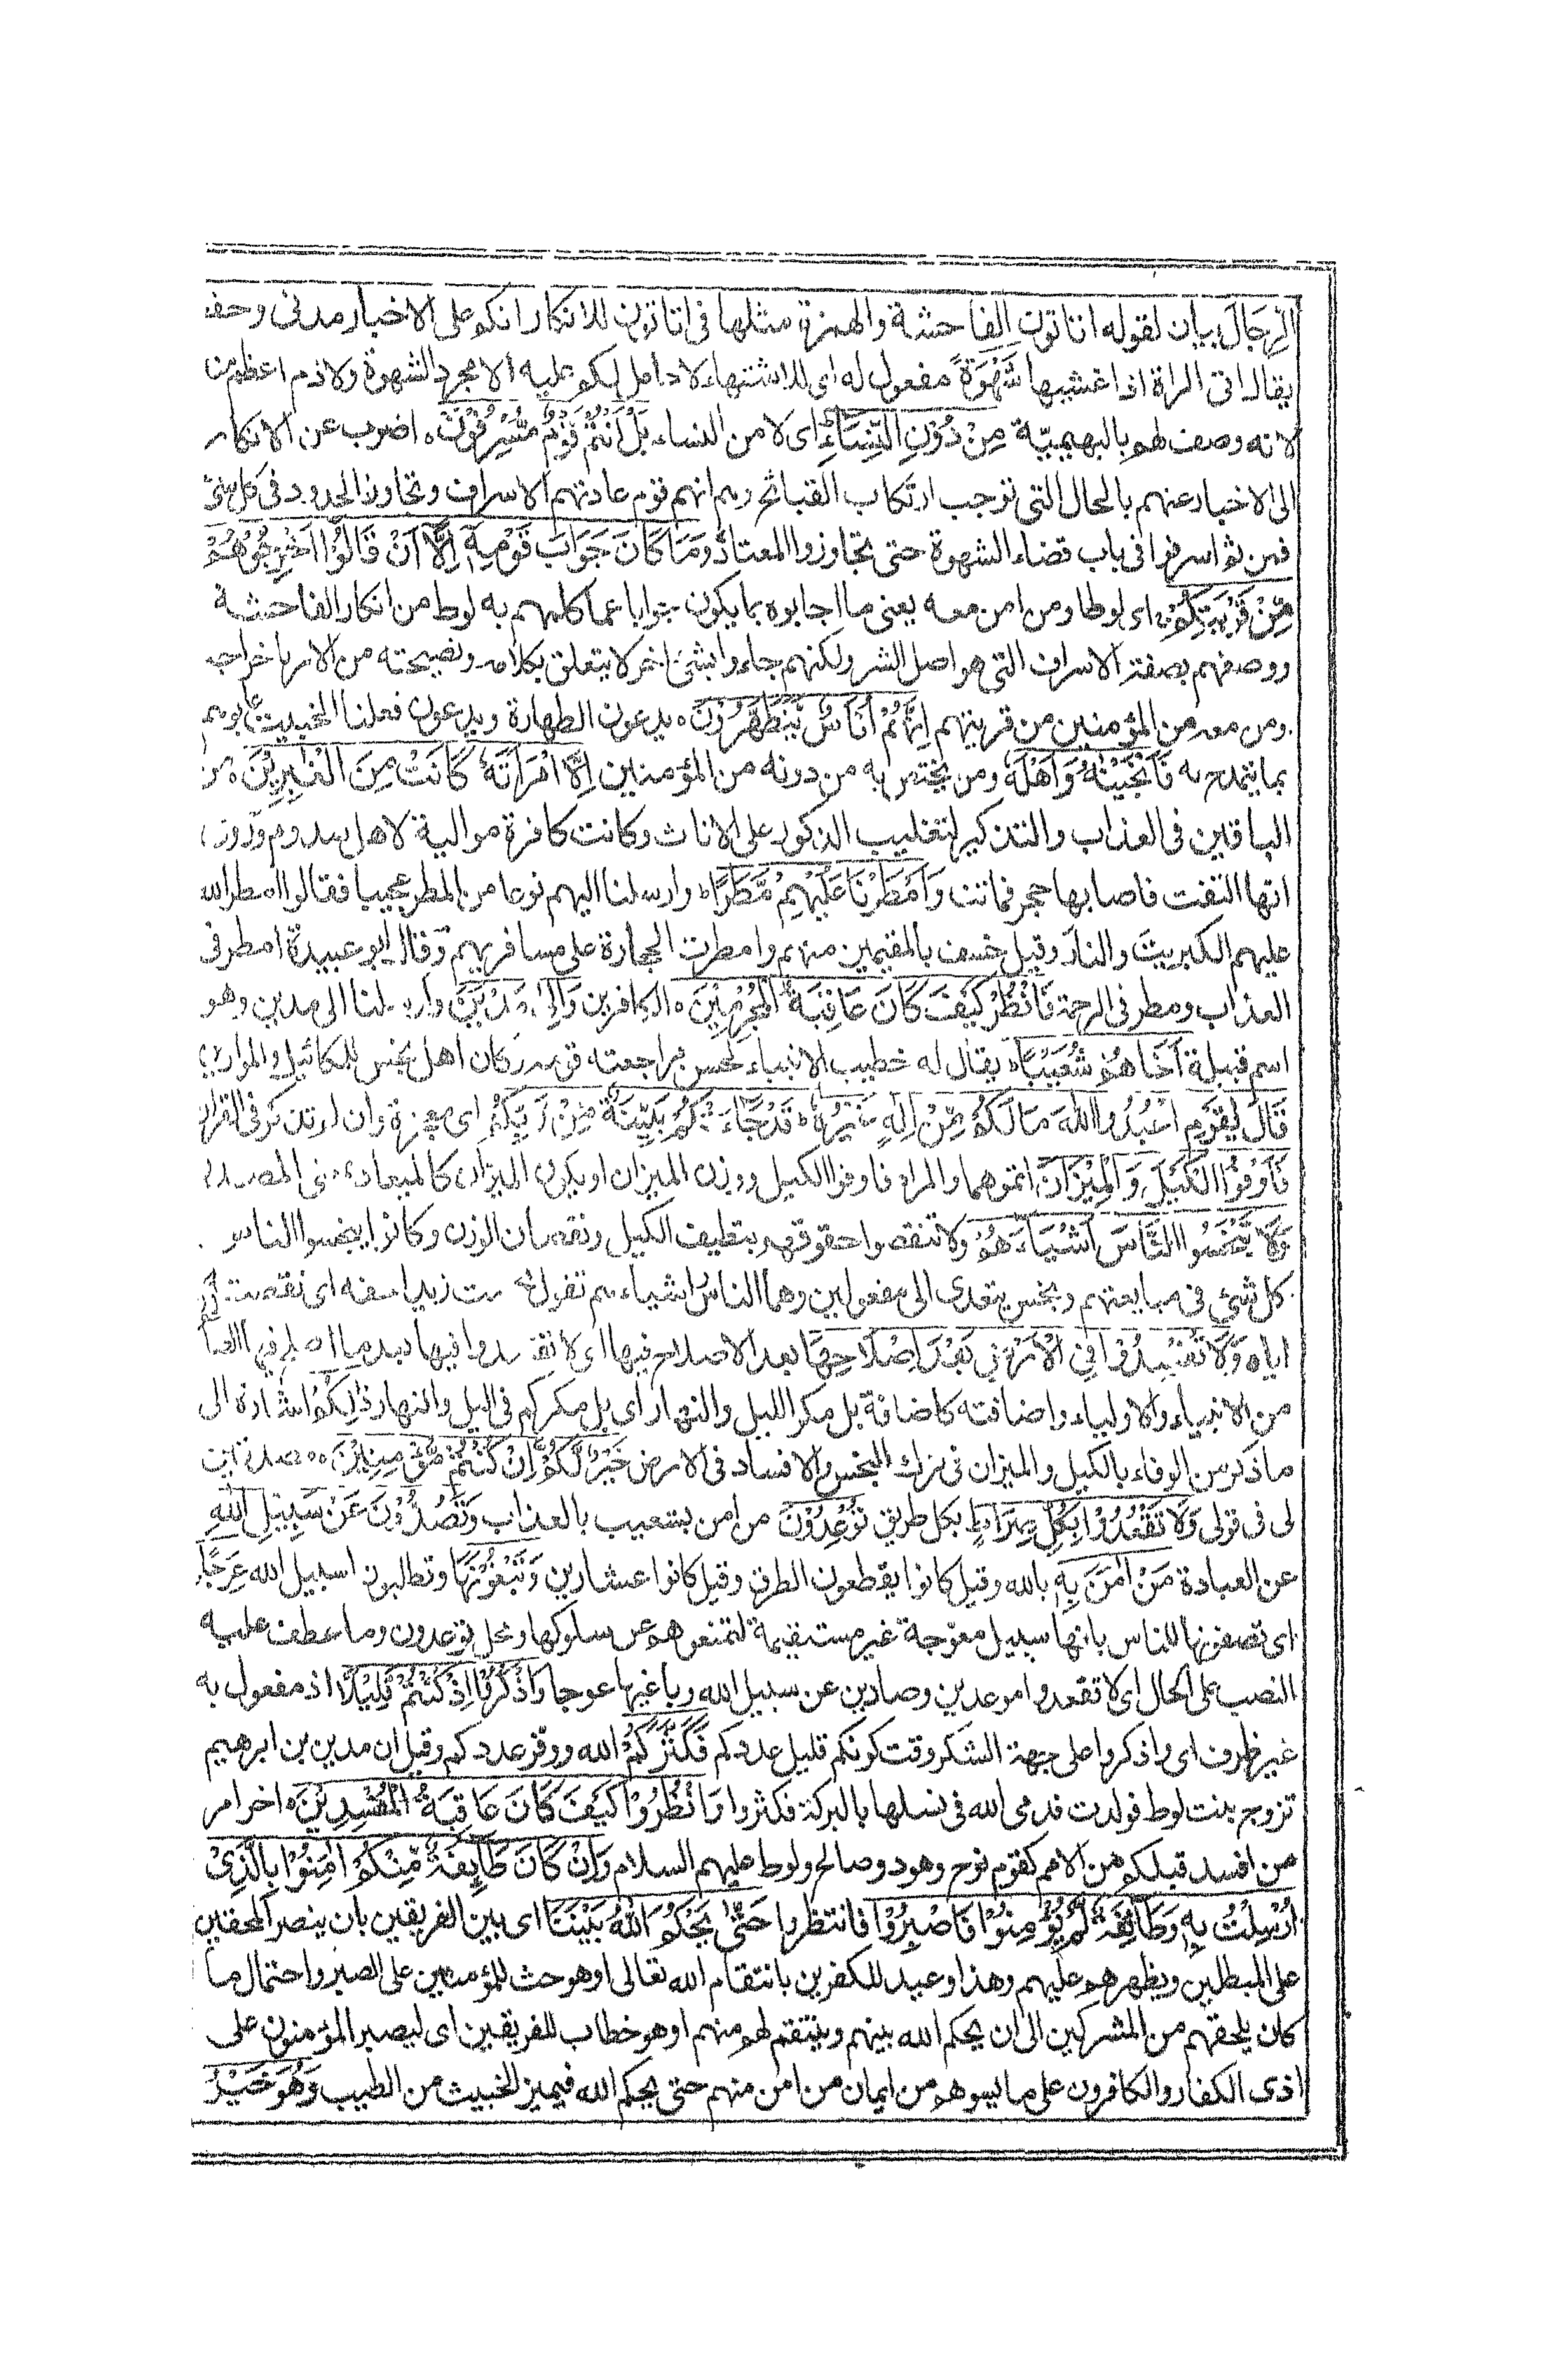 الرِّجَالَ بيان لقوله اتاتون الفاحشة والهمزة مثلها فى اتاتون للانكار انكم على الاخبار مدنى وحف
يقال اتى المراة اذا غشيها شَهْوَةً مفعول له اى للاشتهاء لا حامل لكم عليه الا مجرد الشهوة ولا ذم اعظم من
لانه وصف لهم بالبهيمية مِنْ دُوْنِ النِّسَاءِ اى لا من النساء بَلْ اَنْتُمْ قَوْمٌ مُّسْرِفُوْنَ ه اضرب عن الانكار
الى الاخبار عنهم بالحال التى توجب ارتكاب القبائح وهم انهم قوم عادتهم الاسراف وتجاوز الحدود فى كل شئ
فمن ثم اسرفوا فى باب قضاء الشهوة حتى تجاوزوا المعتاد وَمَا كَانَ جَوَابَ قَوْمِهٖٓ اِلَّآ اَنْ قَالُوْٓا اَخْرِجُوْهُمْ
مِّنْ قَرْيَتِكُمْ اى لوطا ومن امن معه يعنى ما اجابوه بما يكون جوابا عما كلمهم به لوط من انكار الفاحشة
ووصفهم بصفة الاسراف التى هو اصل الشر ولكنهم جاءوا بشئ اخر لا يتعلق بكلامه ونصيحته من الامر باخراجه
ومن معه من المؤمنين من قريتهم اِنَّهُمْ اُنَاسٌ يَّتَطَهَّرُوْنَ ه يدعون الطهارة ويدعون فعلنا الخبيث عابوهم
بما يتمدح به فَاَنْجَيْنٰهُ وَاَهْلَهٗ ومن يختص به من دونه من المؤمنين اِلَّا امْرَاَتَهٗ كَانَتْ مِنَ الْغٰبِرِيْنَ ه من
الباقين فى العذاب والتذكير لتغليب الذكور على الاناث وكانت كافرة موالية لاهل سدوم وروى
انها التفتت فاصابها حجر فماتت وَاَمْطَرْنَا عَلَيْهِمْ مَّطَرًا وارسلنا اليهم نوعا من المطر عجيبا فقالوا امطر الله
عليهم الكبريت والنار وقيل خسف بالمقيمين منهم وامطرت الحجارة على مسافريهم وقال ابو عبيدة امطر فى
العذاب ومطر فى الرحمة فَانْظُرْ كَيْفَ كَانَ عَاقِبَةُ الْمُجْرِمِيْنَ ه الكافرين وَاِلٰى مَدْيَنَ وارسلنا الى مدين وهو
اسم قبيلة اَخَاهُمْ شُعَيْبًا يقال له خطيب الانبياء لحسن مراجعته قومه وكان اهل بخس للمكائيل والموازين
قَالَ يٰقَوْمِ اعْبُدُوا اللهَ مَا لَكُمْ مِّنْ اِلٰهٍ غَيْرُهٗ قَدْ جَآءَتْكُمْ بَيِّنَةٌ مِّنْ رَّبِّكُمْ اى معجزة وان لم تذكر فى القران
فَاَوْفُوا الْكَيْلَ وَالْمِيْزَانَ اتموهما والمراد فاوفوا الكيل ووزن الميزان او يكون الميزان كالميعاد بمعنى المصدر
وَلَا تَبْخَسُوا النَّاسَ اَشْيَآءَهُمْ ولا تنقصوا حقوقهم بتطفيف الكيل ونقصان الوزن وكانوا يبخسوا الناس
كل شئ فى مبايعتهم وبخس يتعدى الى مفعولين وهما الناس اشياءهم تقول بخست زيدا حقه اى نقصت
اياه وَلَا تُفْسِدُوْا فِى الْاَرْضِ بَعْدَ اِصْلَاحِهَا بعد الاصلاح فيها اى لا تفسدوا فيها بعد ما اصلح فيها
من الانبياء والاولياء واضافته كاضافة بل مكر الليل والنهار اى بل مكركم فى اليل والنهار ذٰلِكُمْ اشارة الى
ما ذكر من الوفاء بالكيل والميزان فى ترك البخس والافساد فى الارض خَيْرٌ لَّكُمْ اِنْ كُنْتُمْ مُّؤْمِنِيْنَ ه مصدقين
لى فى قولى وَلَا تَقْعُدُوْا بِكُلِّ صِرَاطٍ بكل طريق تُوْعِدُوْنَ من امن بشعيب بالعذاب وَتَصُدُّوْنَ عَنْ سَبِيْلِ اللهِ
عن العبادة مَنْ اٰمَنَ بِهٖ بالله وقيل كانوا يقطعون الطرق وقيل كانوا عشارين وَتَبْغُوْنَهَا وتطلبون لسبيل الله عِوَجًا
اى تصفونها للناس بانها سبيل معوّجة غير مستقيمة لتمنعوهم عن سلوكها ومحل توعدون وما عطف عليه
النصب على الحال اى لا تقعدوا موعدين وصادين عن سبيل الله وباغيها عوجا وَاذْكُرُوْٓا اِذْ كُنْتُمْ قَلِيْلًا اذ مفعول به
غير ظرف اى واذكروا على جهة الشكر وقت كونكم قليل عددكم فَكَثَّرَكُمْ الله ووفر عددكم وقيل ان مدين بن ابرهيم
تزوج بنت لوط فولدت فرمى الله فى نسلها بالبركة فكثروا وَانْظُرُوْا كَيْفَ كَانَ عَاقِبَةُ الْمُفْسِدِيْنَ ه اخر امر
من افسد قبلكم من الامم كقوم نوح وهود وصالح ولوط عليهم السلام وَاِنْ كَانَ طَآئِفَةٌ مِّنْكُمْ اٰمَنُوْا بِالَّذِىْٓ
اُرْسِلْتُ بِهٖ وَطَآئِفَةٌ لَّمْ يُؤْمِنُوْا فَاصْبِرُوْا فانتظروا حَتّٰى يَحْكُمَ اللهُ بَيْنَنَا اى بين الفريقين بان ينصر المحقين
على المبطلين ويظهرهم عليهم وهذا وعيد للكفرين بانتقام الله تعالى او هو حث للمؤمنين على الصبر واحتمال ما
كان يلحقهم من المشركين الى ان يحكم الله بينهم وينتقم لهم منهم او هو خطاب للفريقين اى ليصبر المؤمنون على
اذى الكفار والكافرون على ما يسوهم من ايمان من امن منهم حتى يحكم الله فيميز الخبيث من الطيب وَهُوَ خَيْرُ